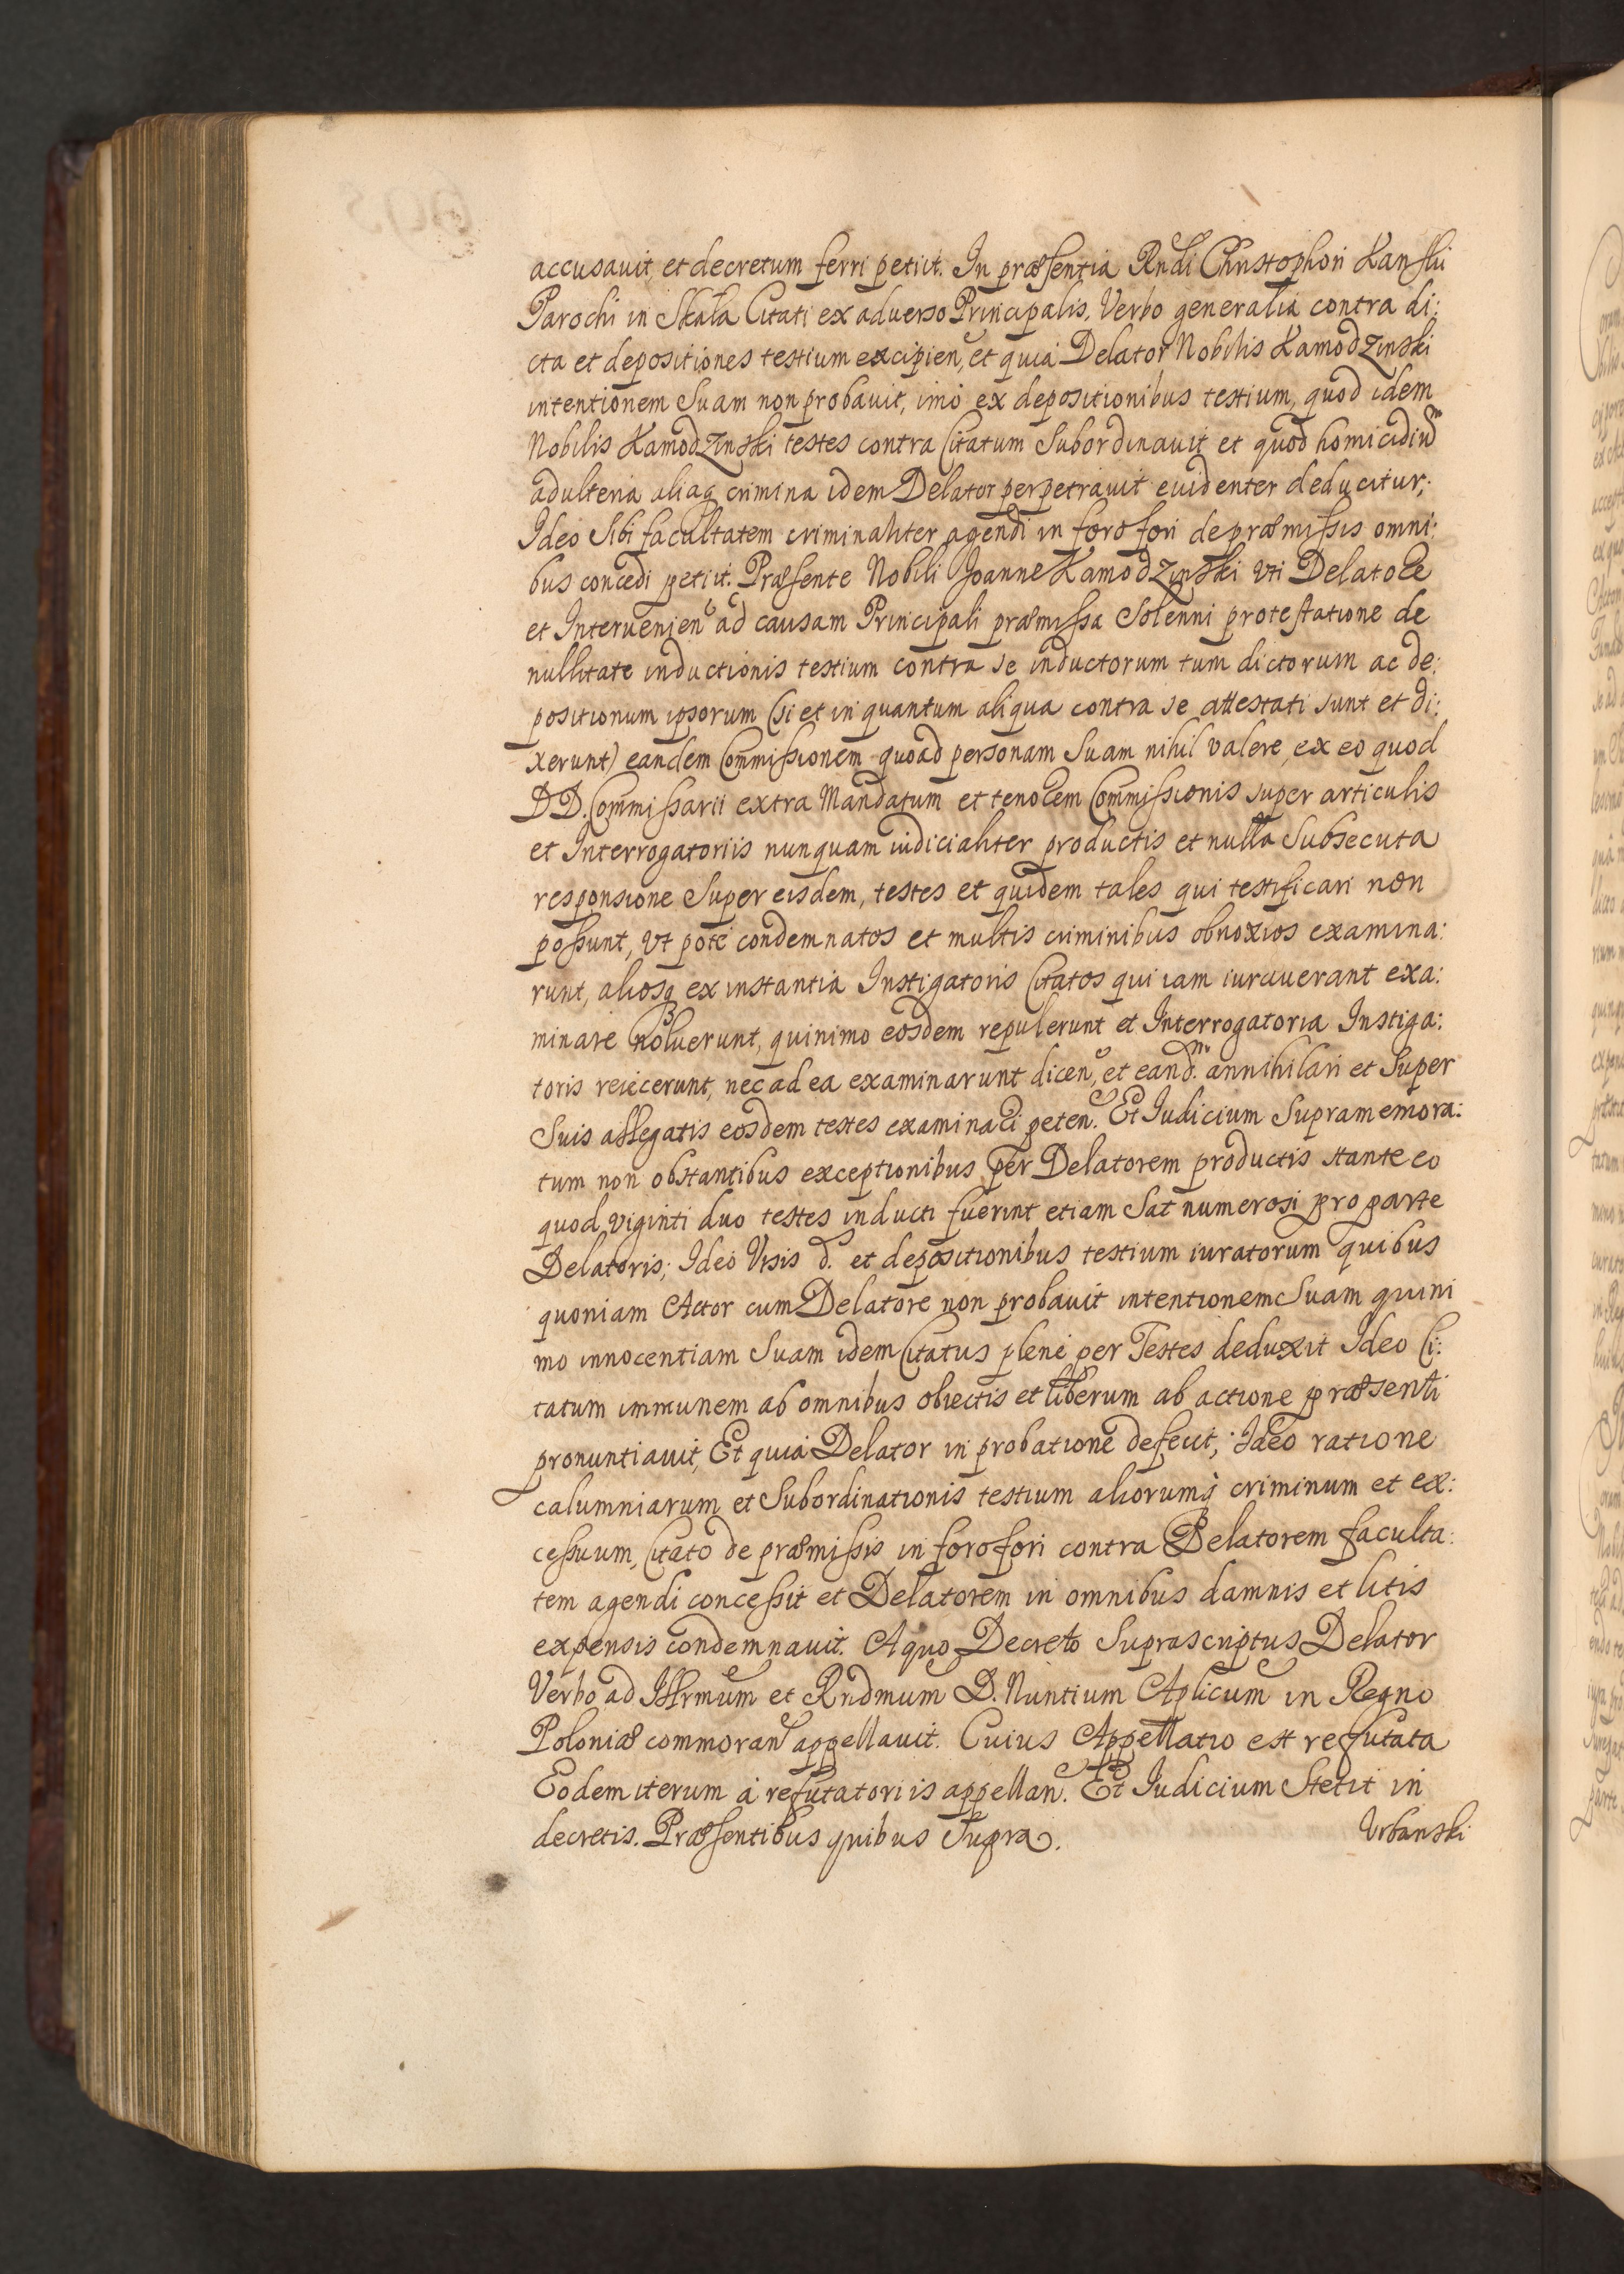 accusavit, et decretum ferri petiit. In præsentia Rndi Christophori Kanski
Parochi in Skała Citati ex adverso Principalis, Verbo generalia contra di:
cta et depositiones testium excipien, et quia Delator Nobilis Kamodzinski
intentionem Suam non probavit, imò ex depositionibus testium, quod idem
Nobilis Kamodzinski testes contra Citatum Subordinavit et quod homicidiũ
adulteria aliaq crimina idem Delator perpetravit evidenter deducitur;
Ideo Sibi facultatem criminaliter agendi in foro fori de præmissis omni:
bus concedi petiit. Præsente Nobili Joanne Kamodzinski Vti Delatore
et Intervenien ad causam Principali præmissa Solenni protestatione de
nullitate inductionis testium contra se inductorum tum dictorum ac de:
positionum ipsorum (si et in quantum aliqua contra se attestati sunt et di:
xerunt) eandem Commissionem quoad personam Suam nihil valere, ex eo quod
DD. Commissarii extra Mandatum et tenorem Commissionis super articulis
et Interrogatoriis nunquam iudicialiter productis et nulla Subsecuta
responsione Super eisdem, testes et quidem tales qui testificari non
possunt, Vt potè condemnatos et multis criminibus obnoxios examina:
runt, aliosq ex instantia Instigatoris Citatos qui iam iuraverant exa:
minare noluerunt, quinimo eosdem repulerunt et Interrogatoria Instiga:
toris reiecerunt, nec ad ea examinarunt dicen, et eand. annihilari et Super
Suis allegatis eosdem testes examinari peten. Et Iudicium Supramemora:
tum non obstantibus exceptionibus per Delatorem productis stante eo
quod viginti duo testes inducti fuerint etiam Sat numerosi pro parte
Delatoris; Ideo Visis d. et depositionibus testium iuratorum quibus
quoniam Actor cum Delatore non probavit intentionem Suam quini
mo innocentiam Suam idem Citatus plenè per Testes deduxit Ideo Ci:
tatum immunem ab omnibus obiectis et liberum ab actione præsenti
pronuntiavit, Et quia Delator in probatione defecit; Ideo ratione
calumniarum et Subordinationis testium aliorumq criminum et ex:
cessuum, Citato de præmissis in foro fori contra Delatorem faculta:
tem agendi concessit et Delatorem in omnibus damnis et litis
expensis condemnavit. A quo Decreto Suprascriptus Delator
Verbo ad Illrmum et Rndmum D. Nuntium Aplicum in Regno
Poloniæ commoran appellavit. Cuius Appellatio est refutata
Eodem iterum à refutatoriis appellan. Et Iudicium Stetit in
decretis. Præsentibus quibus Supra.
Urbanski